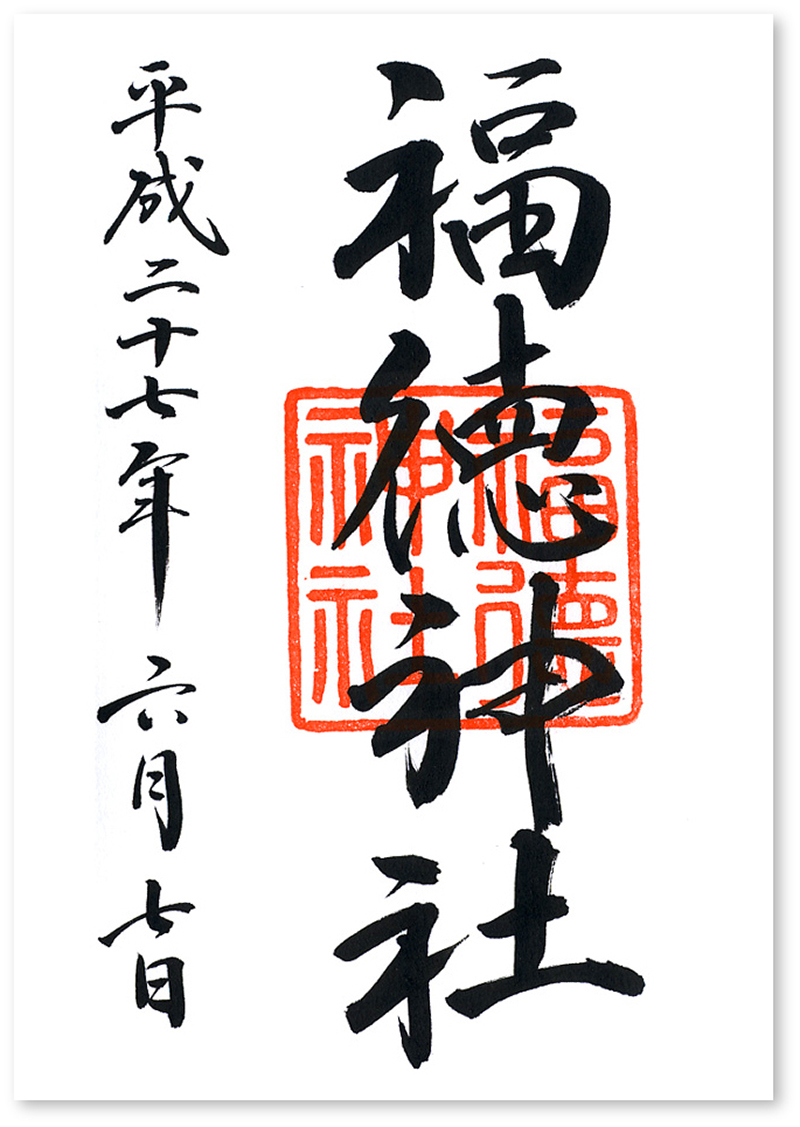 福徳神社
福徳神社
平成二十七年六月七日